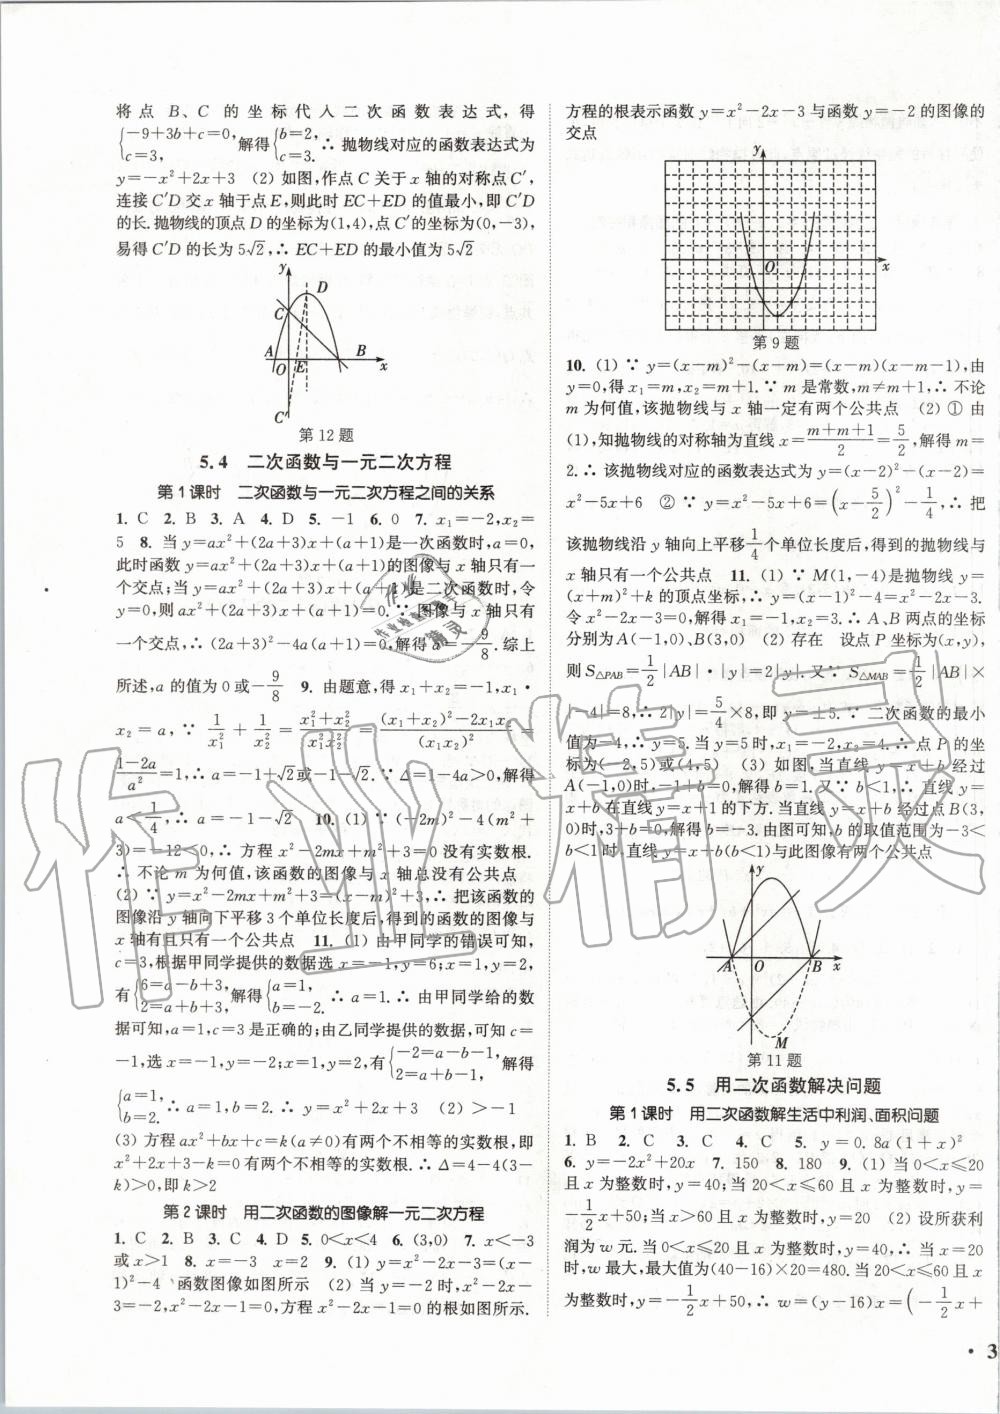 将点 B、C 的坐标代入二次函数表达式，得
{−9+3b+c=0, c=3, 解得 {b=2, c=3. ∴ 抛物线对应的函数表达式为
y=−x²+2x+3 (2) 如图,作点 C 关于 x 轴的对称点 C′,
连接 C′D 交 x 轴于点 E,则此时 EC+ED 的值最小,即 C′D
的长.抛物线的顶点 D 的坐标为(1,4),点 C′的坐标为(0,−3),
易得 C′D 的长为 5√2,∴ EC+ED 的最小值为 5√2
y
D
C
A O E B x
C′
第 12 题
5.4 二次函数与一元二次方程
第 1 课时 二次函数与一元二次方程之间的关系
1. C 2. B 3. A 4. D 5. −1 6. 0 7. x₁=−2,x₂=
5 8. 当 y=ax²+(2a+3)x+(a+1)是一次函数时,a=0,
此时函数 y=ax²+(2a+3)x+(a+1)的图像与 x 轴只有一
个交点;当 y=ax²+(2a+3)x+(a+1)是二次函数时,令
y=0,则 ax²+(2a+3)x+(a+1)=0.∵ 图像与 x 轴只有
一个交点,∴ (2a+3)²−4a(a+1)=0,解得 a=−9/8.综上
所述,a 的值为 0 或−9/8 9. 由题意,得 x₁+x₂=−1,x₁·
x₂=a,∵ 1/x₁²+1/x₂²=(x₁²+x₂²)/(x₁²x₂²)=((x₁+x₂)²−2x₁x₂)/(x₁x₂)²=
(1−2a)/a²=1,∴ a=−1+√2或−1−√2.∵ Δ=1−4a>0,解得
a<1/4,∴ a=−1−√2 10. (1) ∵ (−2m)²−4(m²+
3)=−12<0,∴ 方程 x²−2mx+m²+3=0 没有实数根.
∴ 不论 m 为何值,该函数的图像与 x 轴总没有公共点
(2) ∵ y=x²−2mx+m²+3=(x−m)²+3,∴ 把该函数的
图像沿 y 轴向下平移 3 个单位长度后,得到的函数的图像与
x 轴有且只有一个公共点 11. (1) 由甲同学的错误可知,
c=3,根据甲同学提供的数据选 x=−1,y=6;x=1,y=2,
有{6=a−b+3, 2=a+b+3, 解得{a=1, b=−2. ∴ a=1.∴ 由甲同学给的数
据可知,a=1,c=3 是正确的;由乙同学提供的数据,可知 c=
−1,选 x=−1,y=−2;x=1,y=2,有{−2=a−b−1, 2=a+b−1, 解得
{a=1, b=2. ∴ a=1,b=2.∴ y=x²+2x+3 (2) >−1
(3) 方程 ax²+bx+c=k(a≠0)有两个不相等的实数根,即
x²+2x+3−k=0 有两个不相等的实数根.∴ Δ=4−4(3−
k)>0,即 k>2
第 2 课时 用二次函数的图像解一元二次方程
1. C 2. B 3. C 4. D 5. 0<x<4 6. (3,0) 7. x<−3
或 x>1 8. x=−3 x=2 9. (1) y=x²−2x−3=(x−
1)²−4 函数图像如图所示 (2) 当 y=−2 时,x²−2x−
3=−2,∴ x²−2x−1=0,方程 x²−2x−1=0 的根如图所示.
方程的根表示函数 y=x²−2x−3 与函数 y=−2 的图像的
交点
y
O x
第 9 题
10. (1) ∵ y=(x−m)²−(x−m)=(x−m)(x−m−1),由
y=0,得 x₁=m,x₂=m+1.∵ m 是常数,m≠m+1,∴ 不论
m 为何值,该抛物线与 x 轴一定有两个公共点 (2) ① 由
(1),知抛物线的对称轴为直线 x=(m+m+1)/2=5/2,解得 m=
2.∴ 该抛物线对应的函数表达式为 y=(x−2)²−(x−2)=
x²−5x+6 ② ∵ y=x²−5x+6=(x−5/2)²−1/4,∴ 把
该抛物线沿 y 轴向上平移1/4个单位长度后,得到的抛物线与
x 轴只有一个公共点 11. (1) ∵ M(1,−4)是抛物线 y=
(x+m)²+k 的顶点坐标,∴ y=(x−1)²−4=x²−2x−3.
令 x²−2x−3=0,解得 x₁=−1,x₂=3.∴ A、B 两点的坐标
分别为 A(−1,0)、B(3,0) (2) 存在 设点 P 坐标为(x,y),
则 S△PAB=1/2|AB|·|y|=2|y|.又∵ S△MAB=1/2|AB|×
|−4|=8,∴ 2|y|=5/4×8,即 y=±5.∵ 二次函数的最小
值为−4,∴ y=5.当 y=5 时,x₁=−2,x₂=4.∴ 点 P 的坐
标为(−2,5)或(4,5) (3) 如图,当直线 y=x+b 经过
A(−1,0)时,−1+b=0,解得 b=1.又∵ b<1,∴ 直线 y=
x+b 在直线 y=x+1 的下方.当直线 y=x+b 经过点 B(3,
0)时,3+b=0,解得 b=−3.由图可知,b 的取值范围为−3<
b<1 时,直线 y=x+b(b<1)与此图像有两个公共点
y
A O B x
M
第 11 题
5.5 用二次函数解决问题
第 1 课时 用二次函数解生活中利润、面积问题
1. B 2. C 3. C 4. C 5. y=0.8a(1+x)²
6. y=−2x²+20x 7. 150 8. 180 9. (1) 当 0<x≤20
且 x 为整数时,y=40;当 20<x≤60 且 x 为整数时,y=
−1/2x+50;当 x>60 且 x 为整数时,y=20 (2) 设所获利
润为 w 元.当 0<x≤20 且 x 为整数时,y=40,∴ 当 x=20
时,w 最大,最大值为(40−16)×20=480.当 20<x≤60 且 x
为整数时,y=−1/2x+50,∴ w=(y−16)x=(−1/2x+
· 3
作业精灵